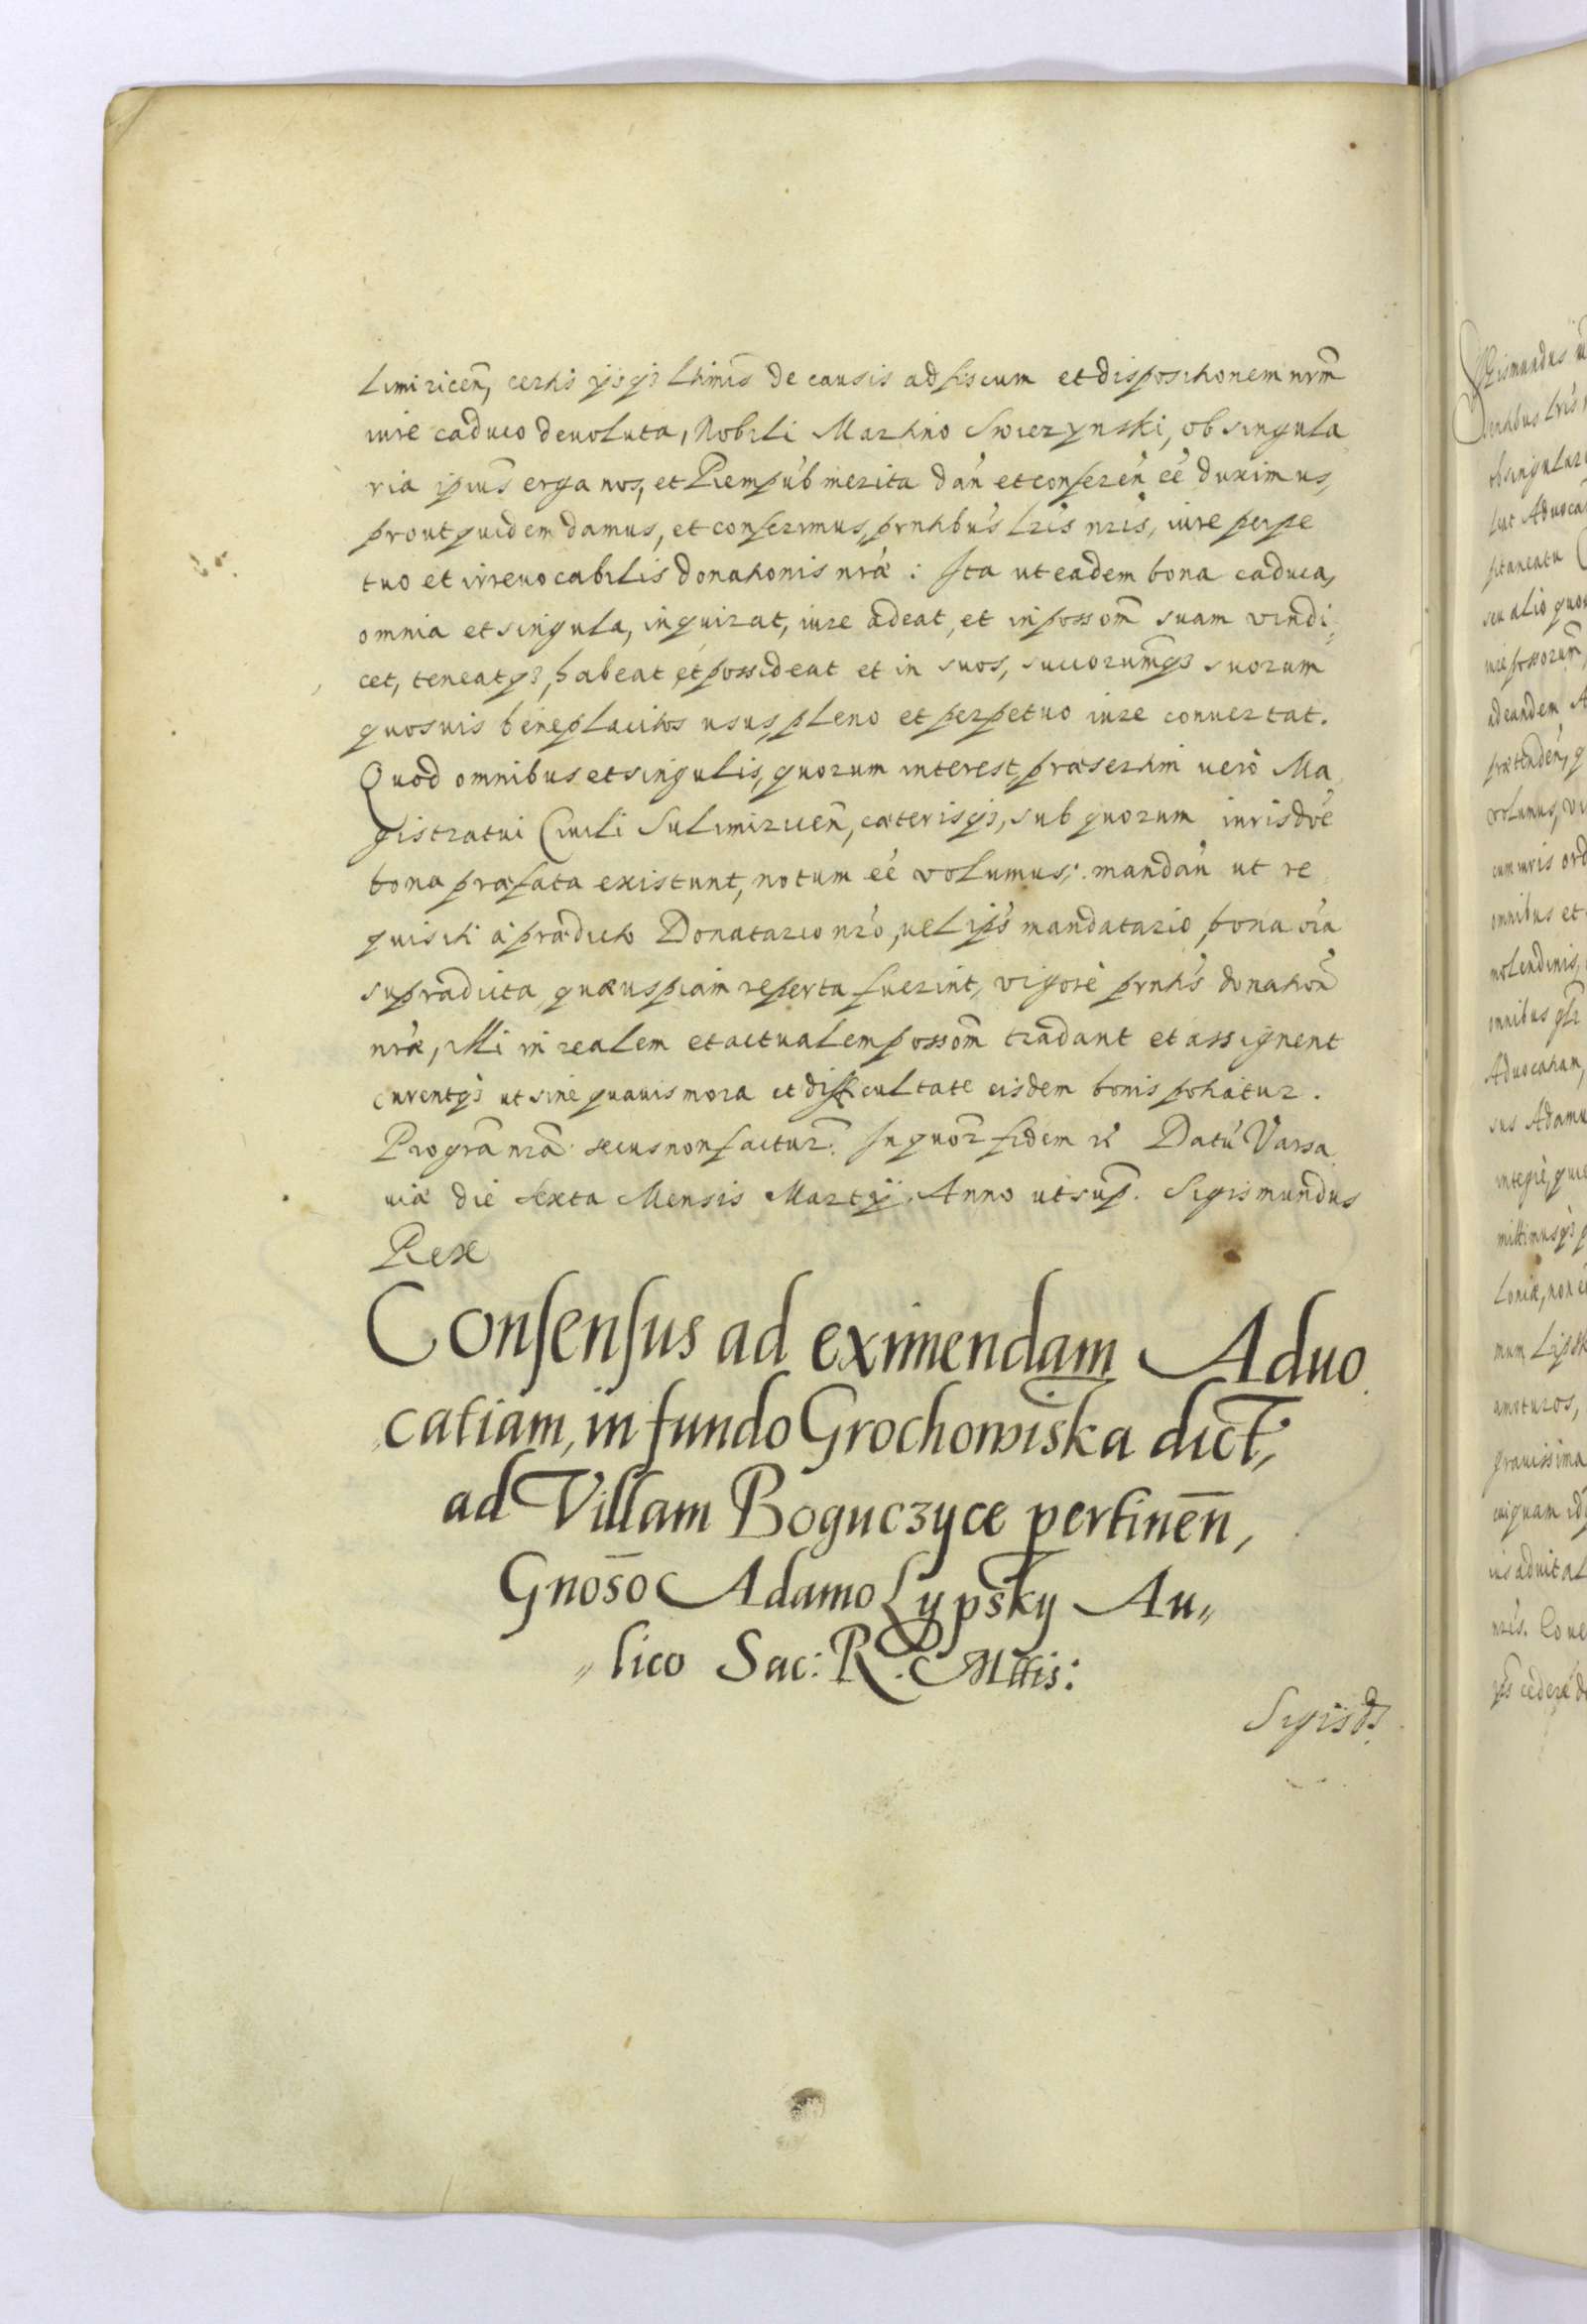 limiricen̄, certis ijsq3 l̄timis de causis ad fiscum et dispositionem nrm̄
iure caduco deuoluta, Nobili Martino Swierzynski, ob singula
ria ipius̄ erga nos, et Rempub́ merita dań et conferen̄ eé duximus,
prout quidem damus, et conferimus, prntibuś lris nris, iure perpe
tuo et irreuocabilis donationis nrǽ: Ita ut eadem bona caduca,
omnia et singula, inquirat, iure adeat, et in possom̄ suam vindi,
cet, teneatq3, habeat et possideat et in suos, succorumq̄3 suorum
quosuis beneplacitos usus, pleno et perpetuo iure conuertat.
Quod omnibus et singulis, quorum interest, præsertim uerò Ma
gistratui Ciuili Sulimiricen̄, cæterisq3, sub quorum iurisdoé
bona præfata existunt, notum eé volumus; mandań ut re
quisiti à prædicto Donatario nró, uel ipś mandatario, bona oiá
supradicta, quæuspiam reperta fuerint, vigore prntiś donation̄
nrǽ, illi in realem et actualem possom̄ tradant et assignent
curentq3 ut sine quauis mora et difficultate eisdem bonis potiatur.
Pro grã nrã secus non factur. In quor fidem rć Datú Varsa
uiæ die sexta Mensis Martij. Anno ut sup̄. Sigismundus
Rex
Consensus ad eximendam Aduo
catiam, in fundo Grochowiska dict,
ad Villam Boguczyce pertinen̄,
Gnōso Adamo Lypsky Au„
„lico Sac: R. Mttis:
Sigisds
Sigismundus
ntibus lris
ob singulari
lut Aduocat
sitaneatu
seu alio quo
ure possorum̄
ad eandem A
prætendeń, q
volumus, vi
cum iuris ord
omnibus et
molendinis,
omnibus glr
Aduocatiam,
sus Adamu
integrè, quie
mittimusq3 p
loniæ, non e
mum Lipsk
amoturos,
grauissima
cuiquam id
ius aduital
nrés. Coue
ips cedere de